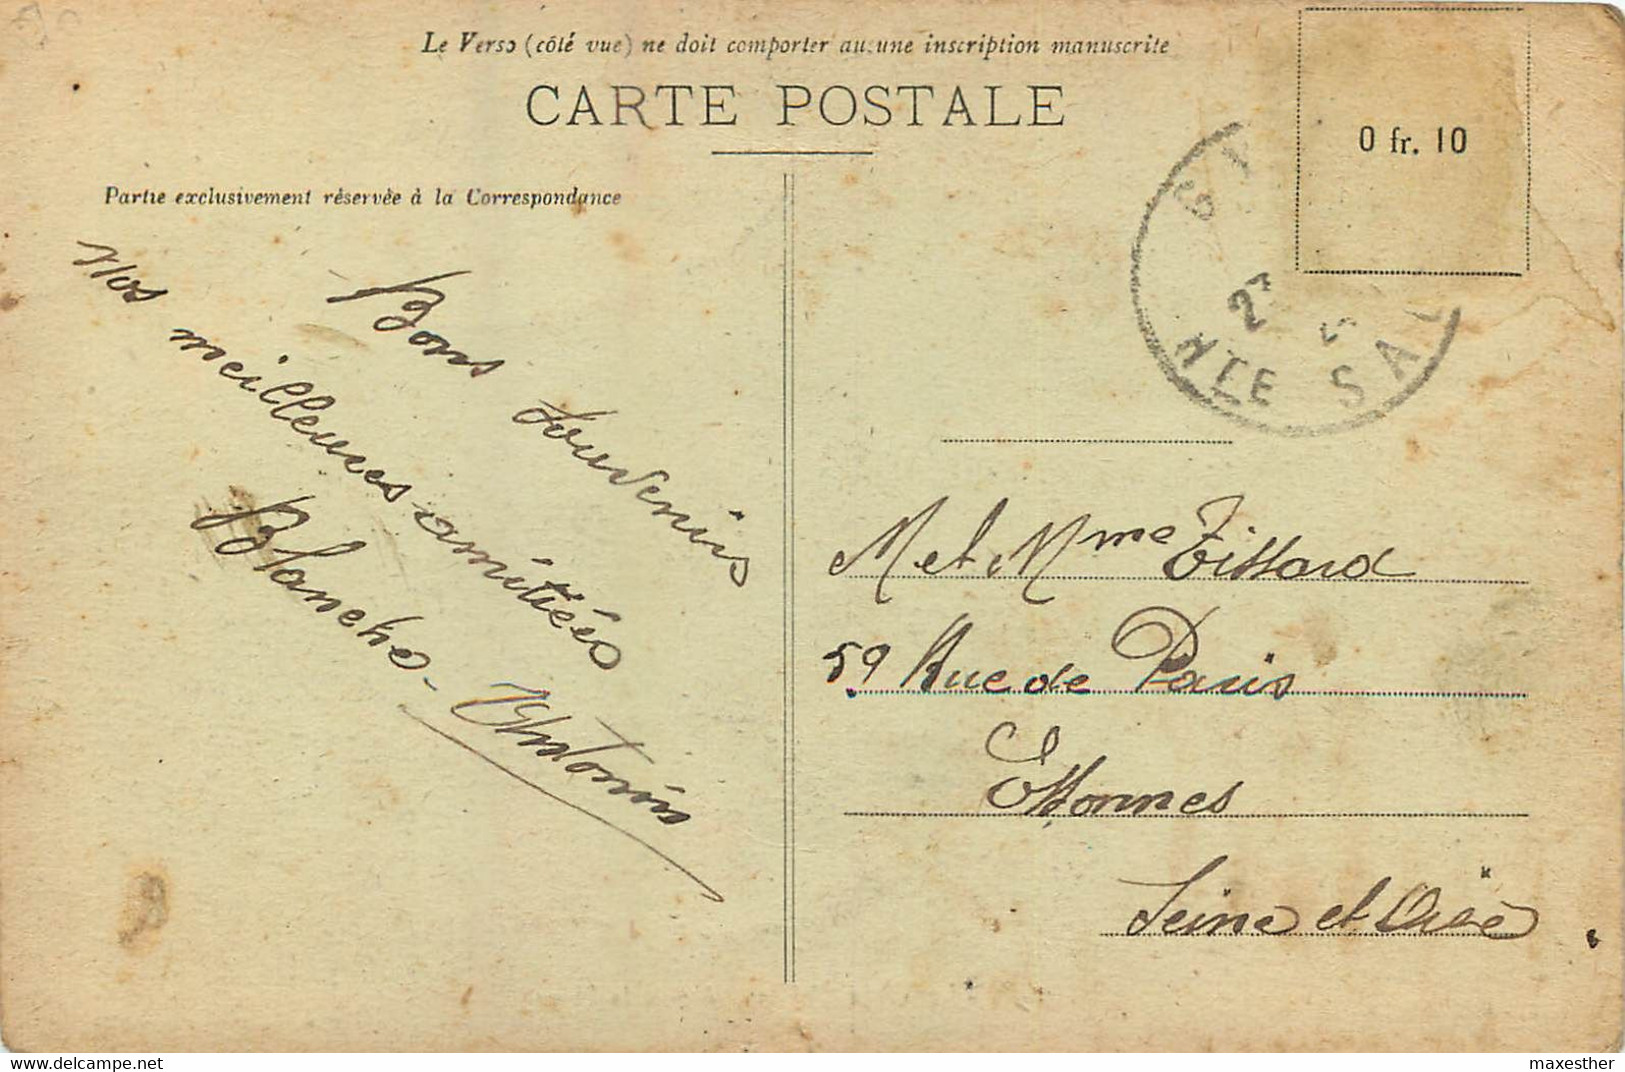 Le Verso (côté vue) ne doit comporter aucune inscription manuscrite
CARTE POSTALE
0 fr. 10
Partie exclusivement réservée à la Correspondance
Bons Souvenirs
Nos meilleures amitiés
Blanche - Antonin
GY
23 5
HTE SAÔ
M et Mme Tissard
59 Rue de Paris
Essonnes
Seine et Oise
Delcampe.net
maxesther